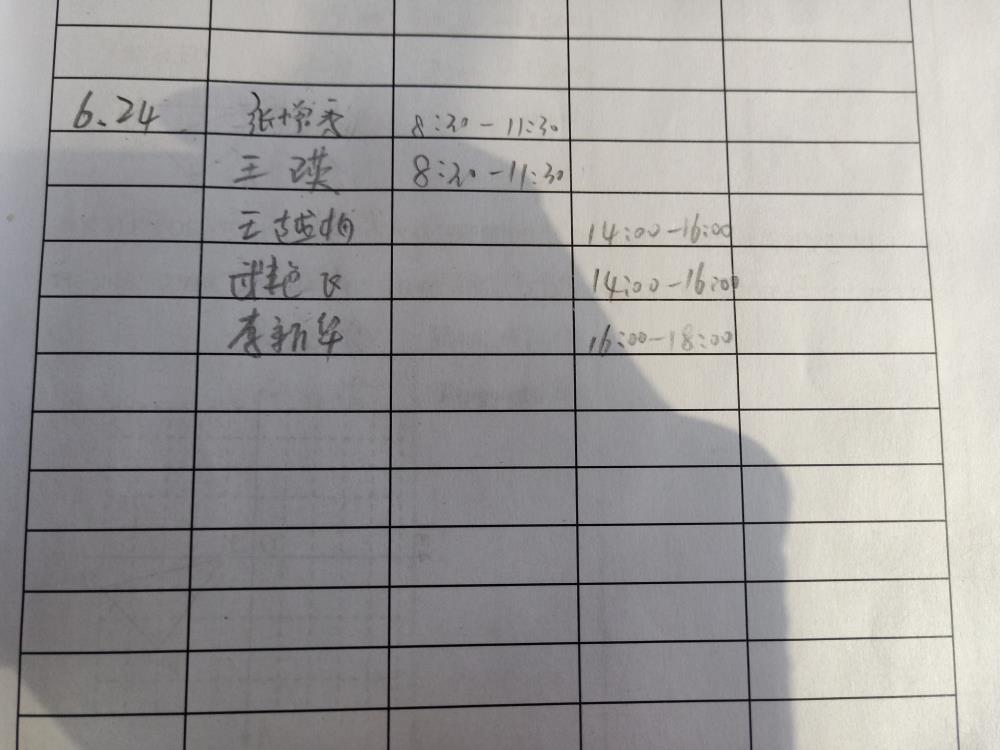 6.24 张增秀 8:30-11:30
王瑛 8:30-11:30
王越 14:00-16:00
艳 14:00-16:00
李新华 16:00-18:00